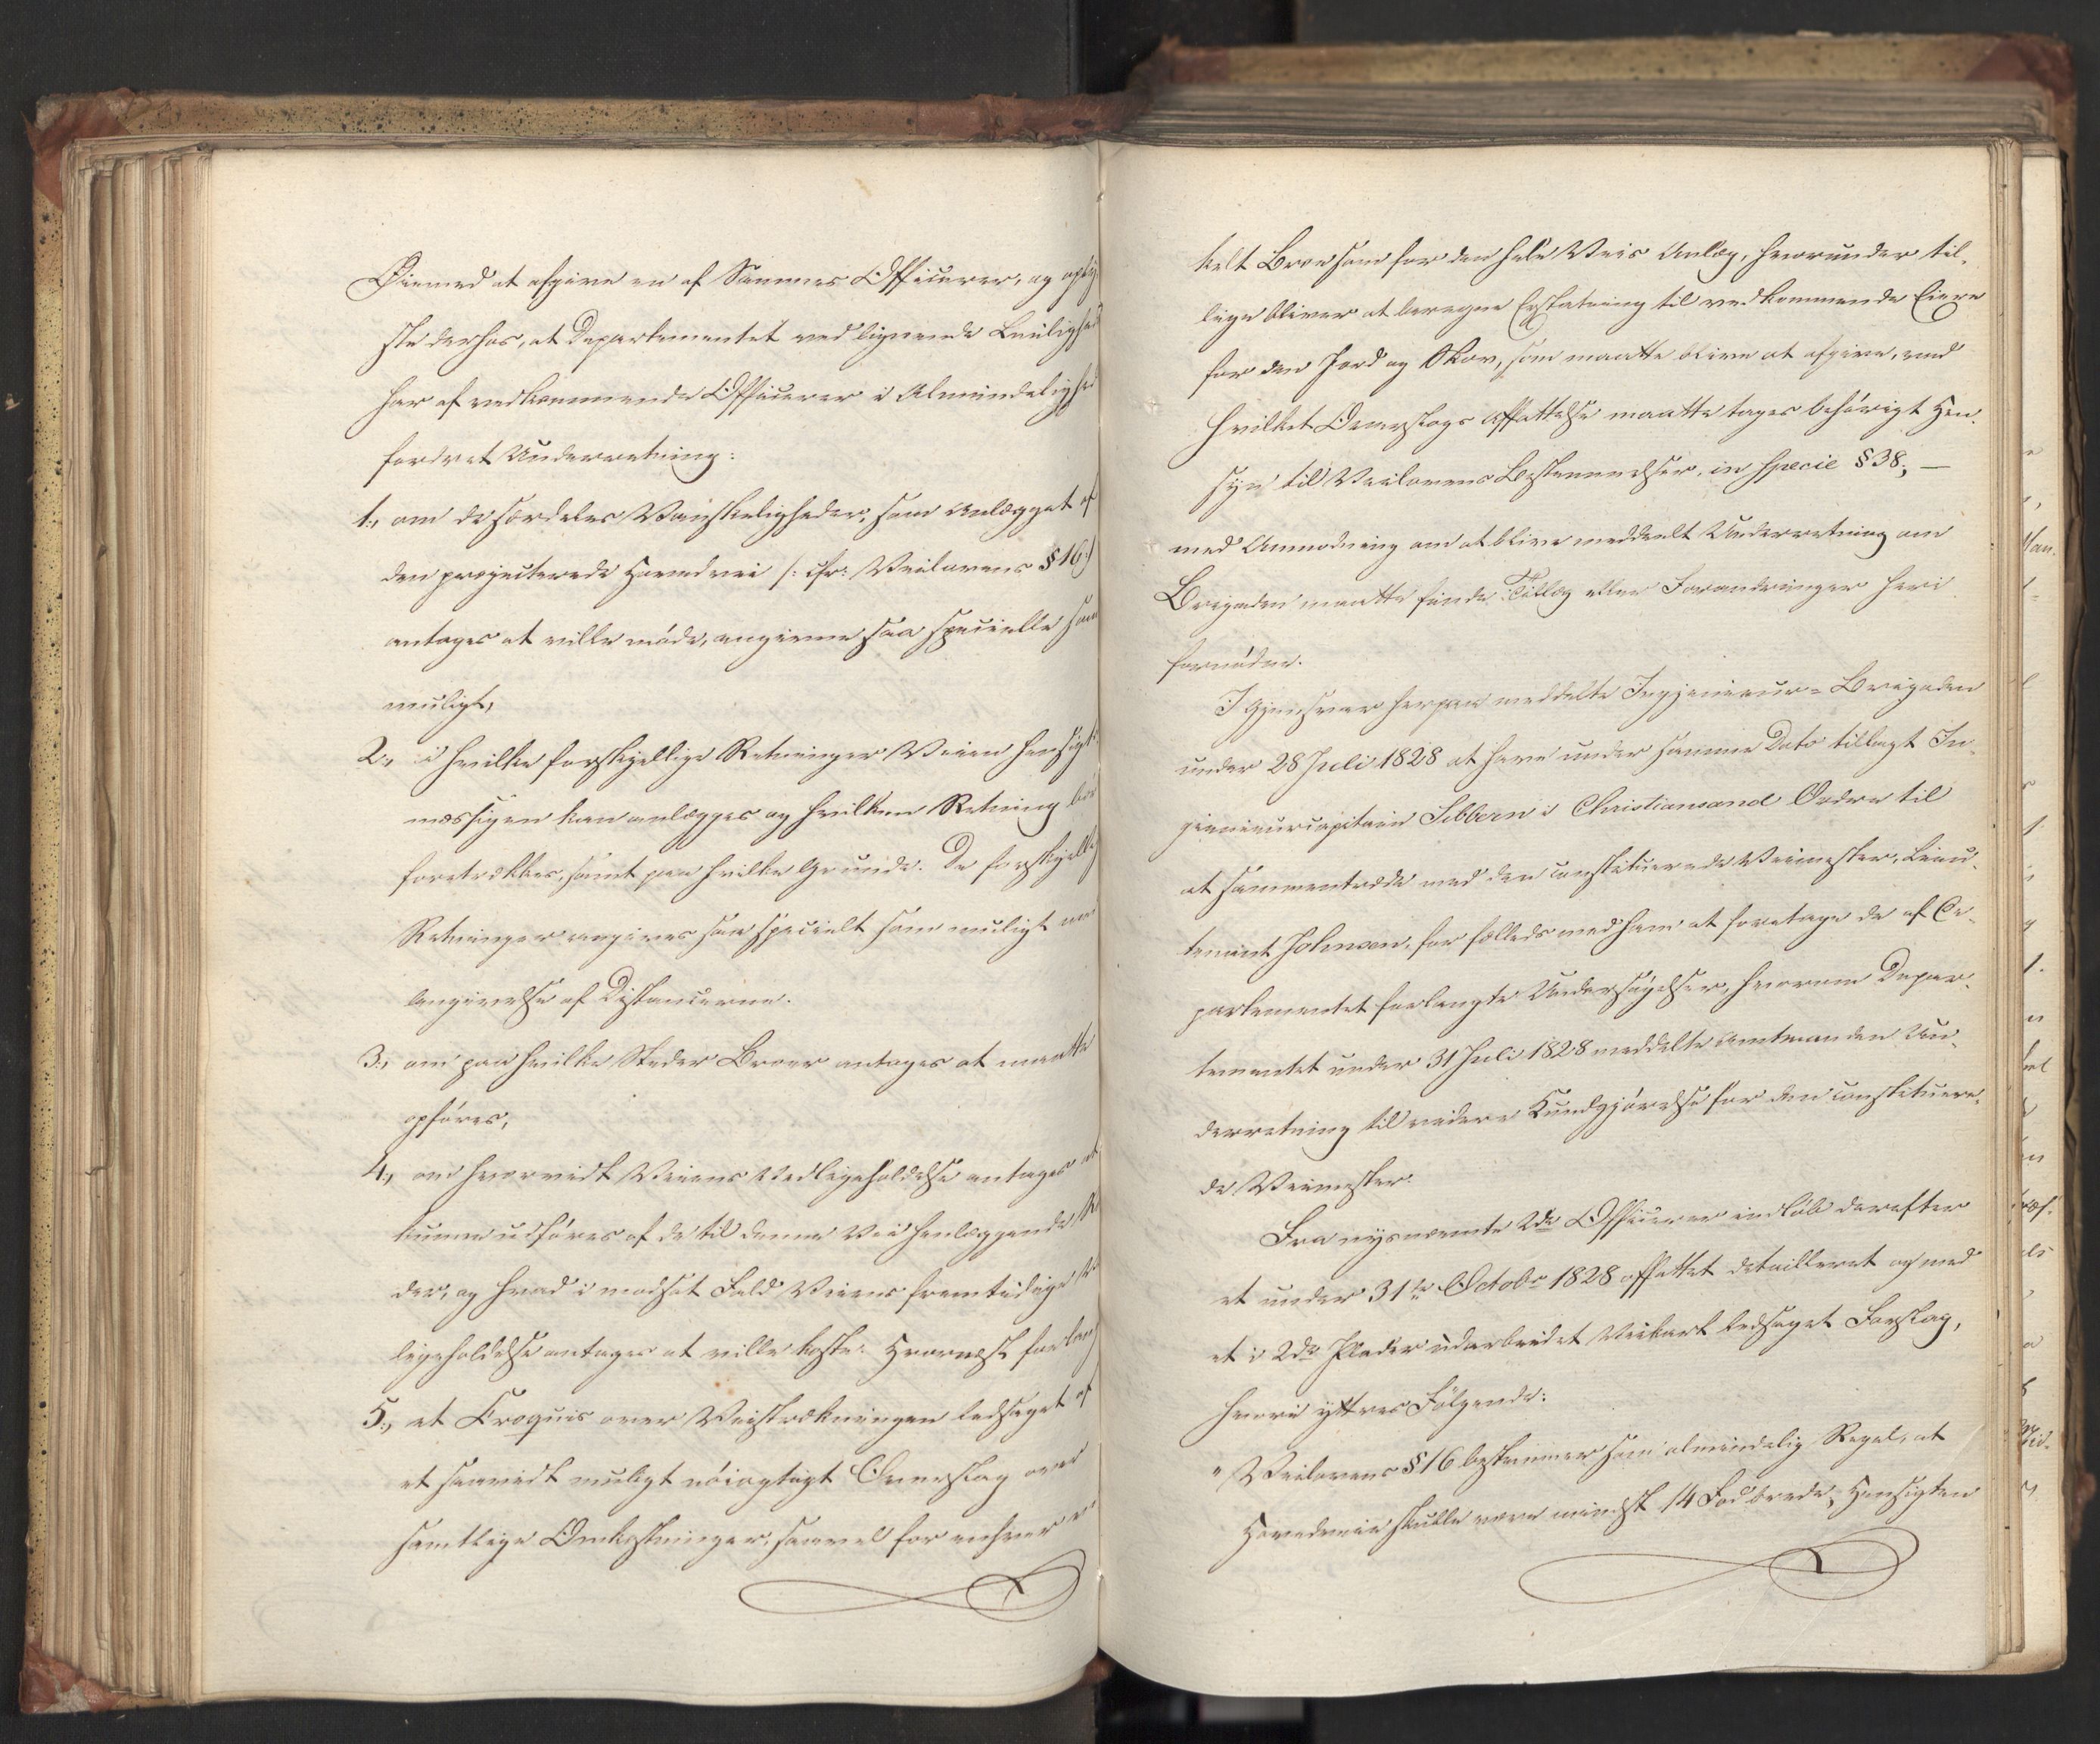 Øiemed at afgive en af Sammes Officierer, og oply-
ste derhos, at Departementet ved lignende Leilighed
har af vedkommende Officierer i Almindelighed
fordret Underretning:
1., om de særdeles Vanskeligheder, som Anlægget af
den projecterede Hovedvei /: cfr: Veilovens § 16:/
antages at ville møde, angivne saa specielle som
muligt,
2., i hvilke forskjellige Retninger Veien hensigts-
mæssigen kan anlægges og hvilken Retning bør
foretrækkes, samt paa hvilke Grunde. De forskjellige
Retninger angives saa specielt som muligt med
Angivelse af Distancerne.
3., om paa hvilke Steder Broer antages at maatte
opføres,
4., om hvorvidt Veiens Vedligeholdelse antages at
kunne udføres af de til denne Vei henlæggende
der, og hvad i modsat Fald Veiens fremtidige
ligeholdelse antages at ville koste. Hvornæst forlang
5., et Croquis over Veistrækningen ledsaget af
et saavidt muligt nøiagtigt Overslag over
samtlige Omkostninger, saavel for enhver
kelt Broe som for den hele Veis Anlæg, hvorunder til-
lige bliver at beregne Erstatning til vedkommende Eiere
for den Jord og Skov, som maatte blive at afgive, ved
hvilket Overslags Affattelse maatte tages behørigt Hen-
syn til Veilovens Bestemmelser, in specie § 38; —
med Anmodning om at blive meddeelt Underretning om
Brigaden maatte finde Tillæg eller Forandringer heri
fornødne.
I Gjensvar herpaa meddelte Ingenieur-Brigaden
under 28 Juli 1828 at have under samme Dato tillagt In-
genieurcapitain Sibbern i Christiansand Ordre til
at sammentræde med den constituerede Veimester, Lieu-
tenant Johnsen, for fælleds med ham at foretage de af De-
partementet forlangte Undersøgelser, hvorom Depar-
tementet under 31 Juli 1828 meddelte Amtmanden Un-
derretning til videre Kundgjørelse for den constituere-
de Veimester.
Fra nysnævnte 2de Officierer indløb derefter
et under 31te Octobr 1828 affattet detailleret og med
et i 2de Plader udarbeidet Veikart ledsaget Forslag,
hvori yttres Følgende:
" Veilovens § 16 bestemmer som almindelig Regel, at
Hovedveie skulle være mindst 14 Fod brede; Hensigten